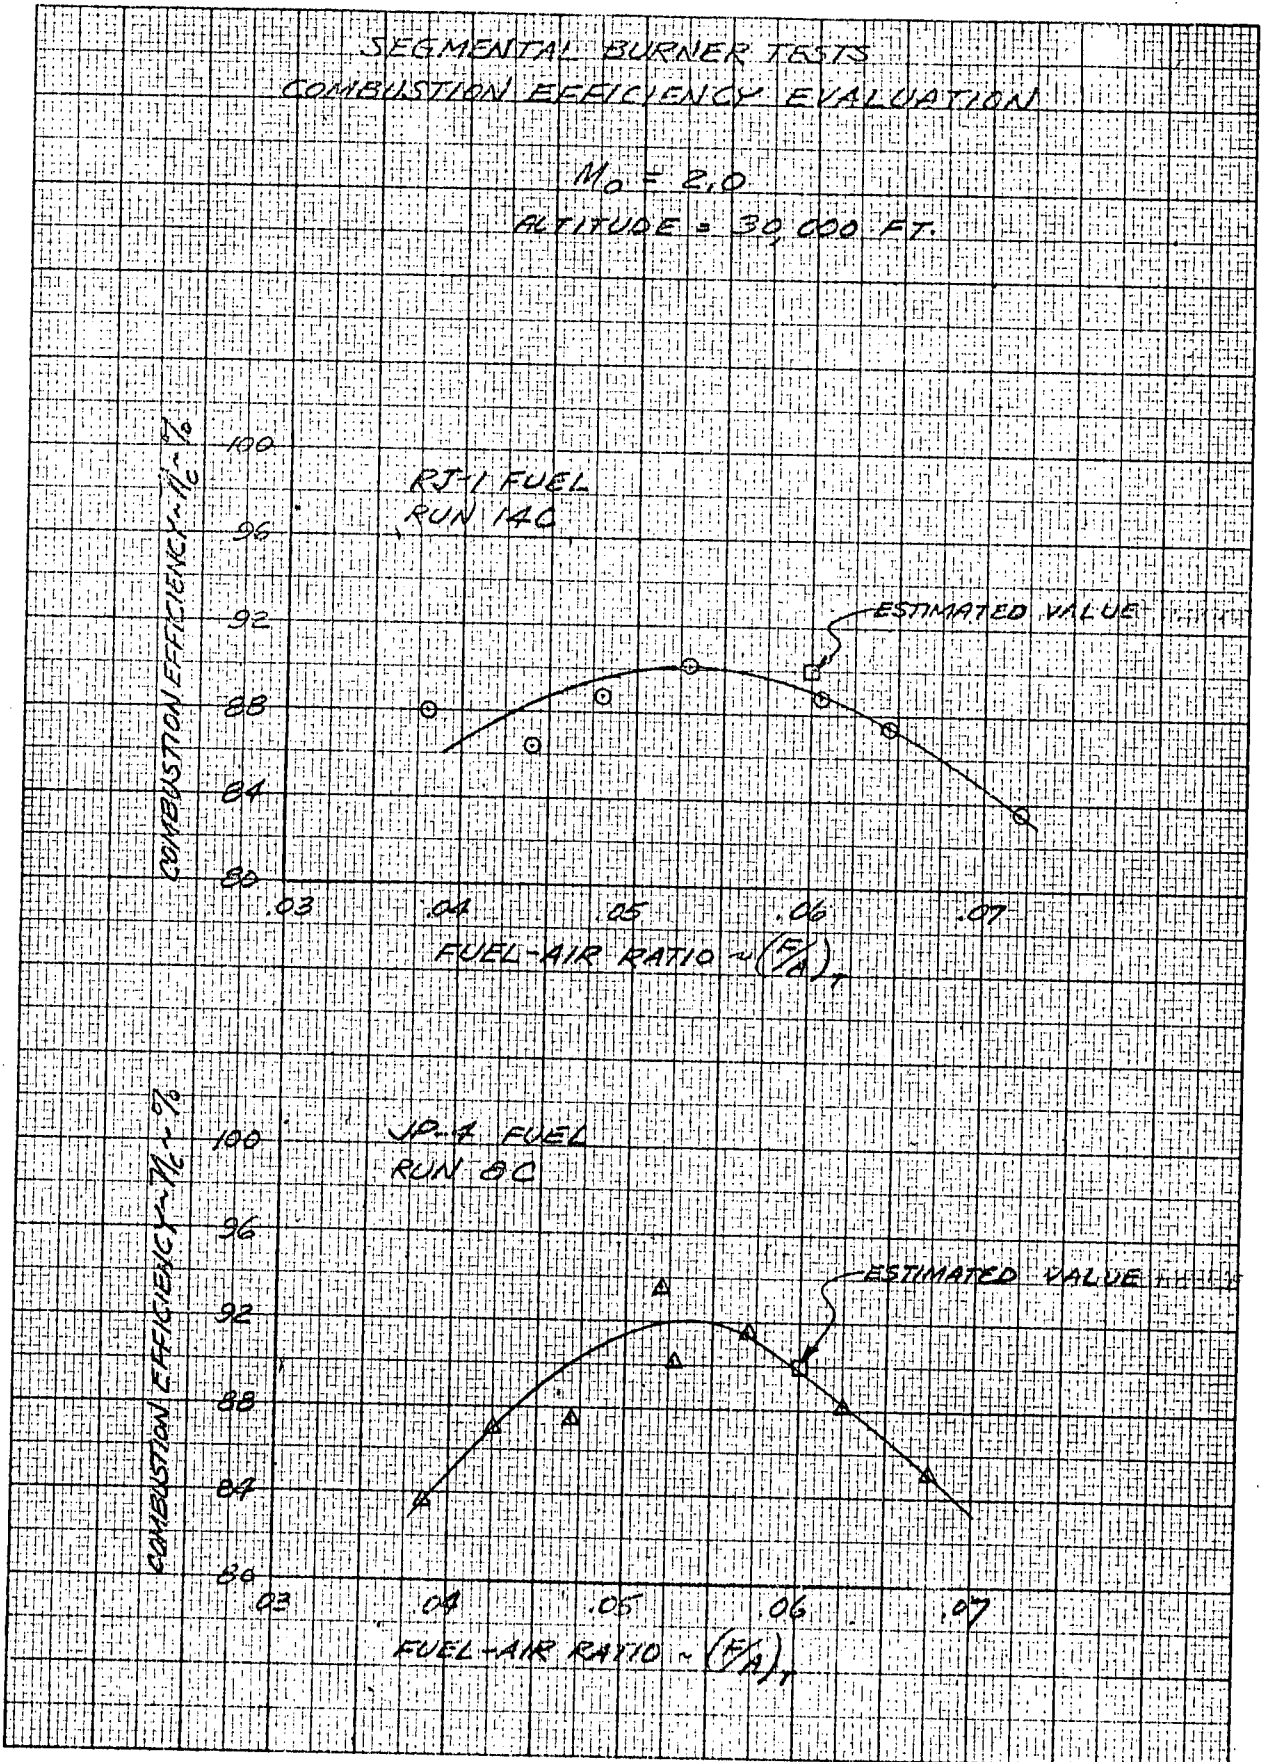 SEGMENTAL BURNER TESTS
COMBUSTION EFFICIENCY EVALUATION
M₀ = 2.0
ALTITUDE = 30,000 FT.
COMBUSTION EFFICIENCY ~ ηc ~ %
100
96
92
88
84
80
RJ-1 FUEL
RUN 14C
ESTIMATED VALUE
.03 .04 .05 .06 .07
FUEL-AIR RATIO ~ (F/A)T
COMBUSTION EFFICIENCY ~ ηc ~ %
100
96
92
88
84
80
JP-4 FUEL
RUN 8C
ESTIMATED VALUE
.03 .04 .05 .06 .07
FUEL-AIR RATIO ~ (F/A)T